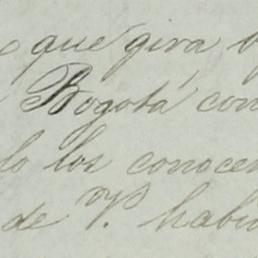 que gira
Bogotá con
lo los conocen
de V. habi